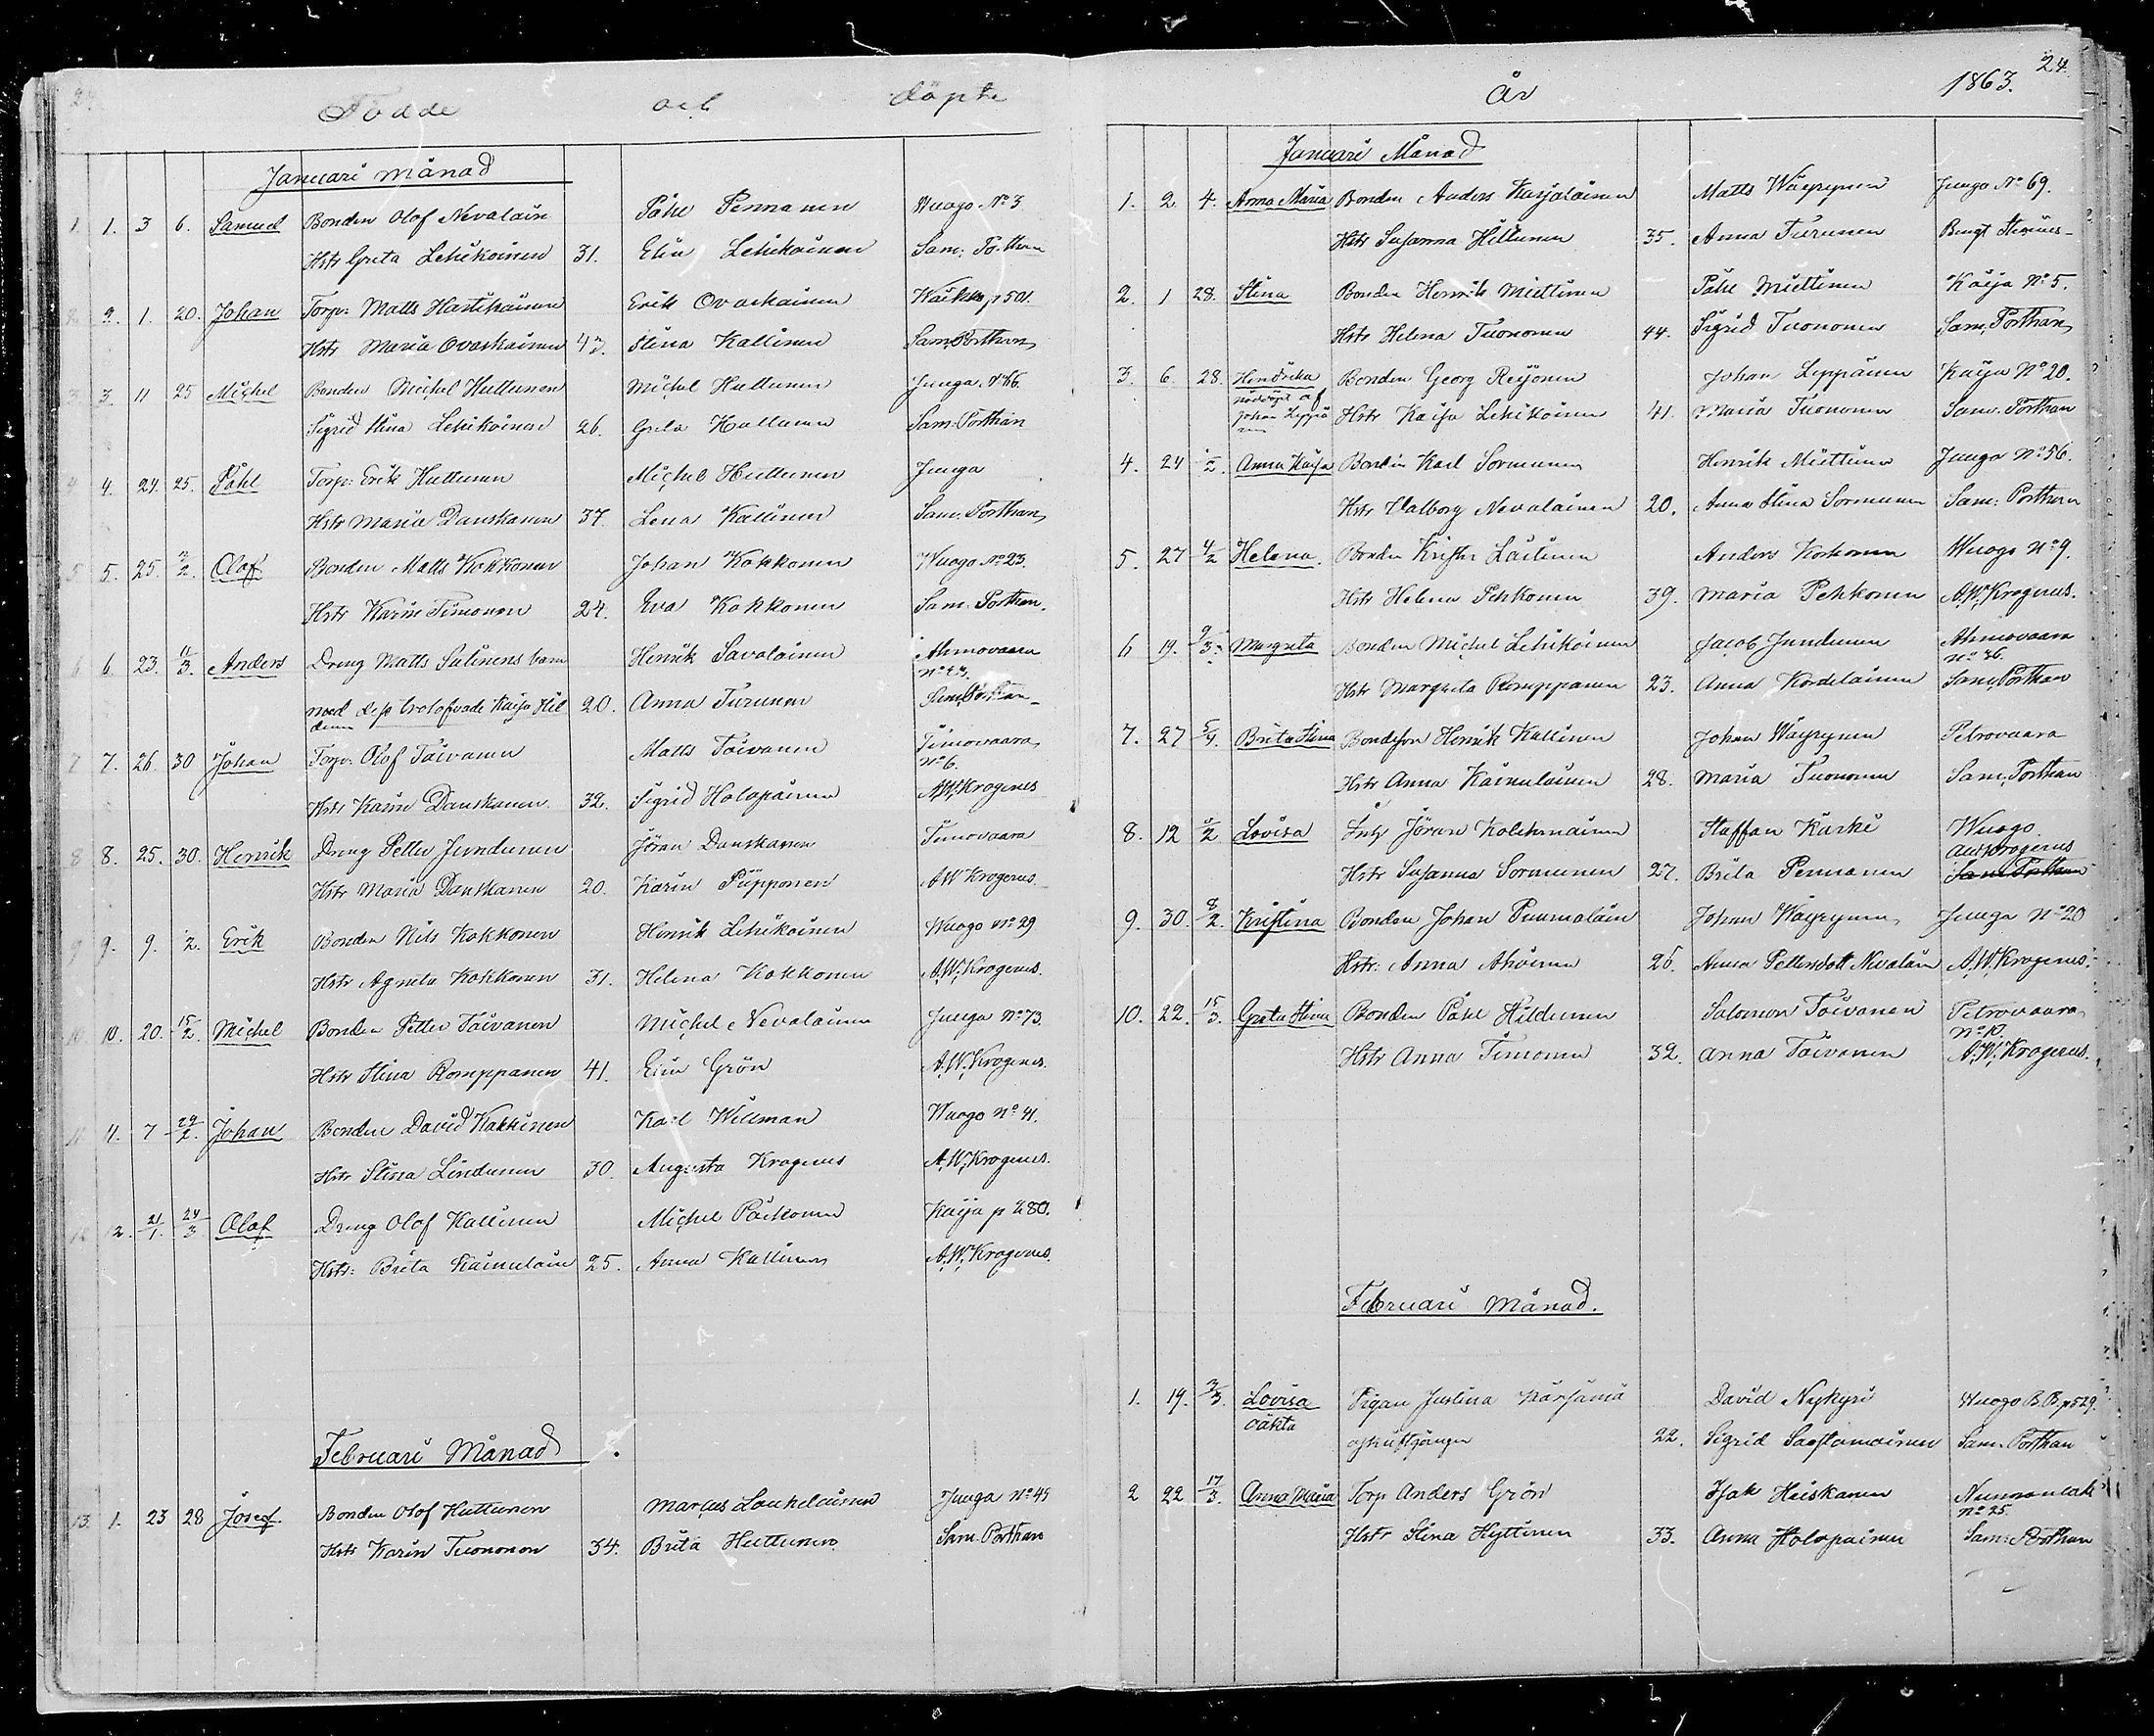 24
Födde och döpte
Januari månad
1. 1. 3 6. Samuel Bonden Olof Nevalain Påhl Pennanen Wuogo No 3
Hstr Greta Lehikoinen 31. Elin Lehikoinen Sam: Porthan
2 2. 1. 20. Johan Torp: Matts Hartikainen Erik Ovaskainen p 501.
Hstr Maria Ovaskainen 43. Stina Kallinen Sam: Porthan
3 3 11 25 Michel Bonden Michel Huttunen Michel Huttunen Juuga No 66.
Sigrid Stina Lehikoinen 26. Greta Huttunen Sam: Porthan
4 4. 24. 25. Påhl Torp: Erik Huttunen Michel Huttunen Juuga
Hstr Maria Danskanen 37. Lena Kallinen Sam: Porthan
5 5. 25. 2/2. Olof Bonden Matts Kokkonen Johan Kokkonen Wuogo No 23.
Hstr Karin Timonen 24. Eva Kokkonen Sam: Porthan.
6 6. 23 11/3. Anders Dreng Matts Salinens barn Henrik Savolainen Ahmovaara
No 43.
med dess trolofvade Kaisa Hil 20. Anna Turunen Sam: Porthan
dunen
7 7. 26. 30 Johan Torp: Olof Toivanen Matts Toivanen Timovaara
No 6.
Hstr Karin Danskanen 32. Sigrid Holopainen A. W. Krogerus
8 8. 25. 30. Henrik Dreng Petter Jundunen Jöran Danskanen Timovaara
Hstr Maria Danskanen 20. Karin Piipponen A W Krogerus.
9 9. 9. 2. Erik Bonden Nils Kokkonen Henrik Lehikoinen Wuogo No 29
Hstr Agneta Kokkonen 31. Helena Kokkonen A. W. Krogerus.
10. 10. 20. 15/2. Michel Bonden Petter Toivanen Michel Nevalainen Juuga No 73.
Hstr Stina Romppanen 41. Elin Grön A. W. Krogerus.
11 11. 7 22/2. Johan Bonden David Kakkinen Karl Willman Wuogo No 41.
Hstr Stina Lindunen 30. Augusta Krogerus A. W. Krogerus.
12 12. 21/1. 24/3 Olof Dreng Olof Kallinen Michel Päikonen Kaija p 280.
Hstr: Brita Kainulain 25. Anna Kallinen A. W. Krogerus.
Februari Månad
13. 1. 23 28 Josef. Bonden Olof Huttunen Marcus Laukelainen Juuga No 45
Hstr Karin Tuononen 34. Brita Huttunen Sam. Porthan
År 1863. 24.
Januari Månad
1. 2 4. Anna Maria Bonden Anders Karjalainen Matts Wäyrynen Juuga No 69.
Hstr Susanna Hiltunen 35. Anna Turunen Bengt
2. 1 28. Stina Bonden Henrik Miettinen Påhl Miettinen Kaija No 5.
Hstr Helena Tuononen 44. Sigrid Tuononen Sam: Porthan
3. 6. 28. Hendrika Bonden Georg Reijonen Johan Leppänen Kaija No 20.
nöddöpt af
Johan Leppä
nen Hstr Kaisa Lehikoinen 41. Maria Tuononen Sam: Porthan
4. 24 /2. Anna Kaisa Bonden Karl Sormunen Henrik Miettinen Juuga No 56.
Hstr Valborg Nevalainen 20. Anna Stina Sormunen Sam: Porthan
5. 27 4/2 Helena. Bonden Krister Laitinen Anders Korhonen Wuogo No 9.
Hstr Helena Pehkonen 39. Maria Pehkonen A. W. Krogerus.
6 19. 9/3. Margreta Bonden Michel Lehikoinen Jacob Jundunen Ahmovaara
No 36.
Hstr Margreta Romppanen 23. Anna Kordelainen Sam: Porthan
7. 27 5/4. Brita Stina Bondeson Henrik Kallinen Johan Wäyrynen Petrovaara
Hstr Anna Kainulainen 28. Maria Tuononen Sam: Porthan
8. 12 /2. Lovisa Inh Jöran Kolehmainen Staffan Karki Wuogo.
A W Krogerus
Hstr Susanna Sormunen 27. Brita Pennanen Sam Porthan
9. 30. 8/2. Kristina Bonden Johan Puumalain Johan Wäyrynen Juuga No 20
Hstr: Anna Ahoinen 26. Anna Pettersdott Nevalain A. W. Krogerus.
10. 22. 15/3. Greta Stina Bonden Påhl Hildunen Salomon Toivanen Petrovaara
No 10.
Hstr Anna Timonen 32. Anna Toivanen A. W. Krogerus.
Februari Månad.
1. 19. 3/3. Lovisa Pigan Justina Kärsämä David Nykyri Wuogo B. B. p 529.
oäkta 22. Sigrid Saastamoinen Sam: Porthan
2 22 17/3. Anna Maria Torp Anders Grön Isak Heiskanen
No 25.
Hstr Stina Hyttinen 33. Anna Holopainen Sam: Porthan